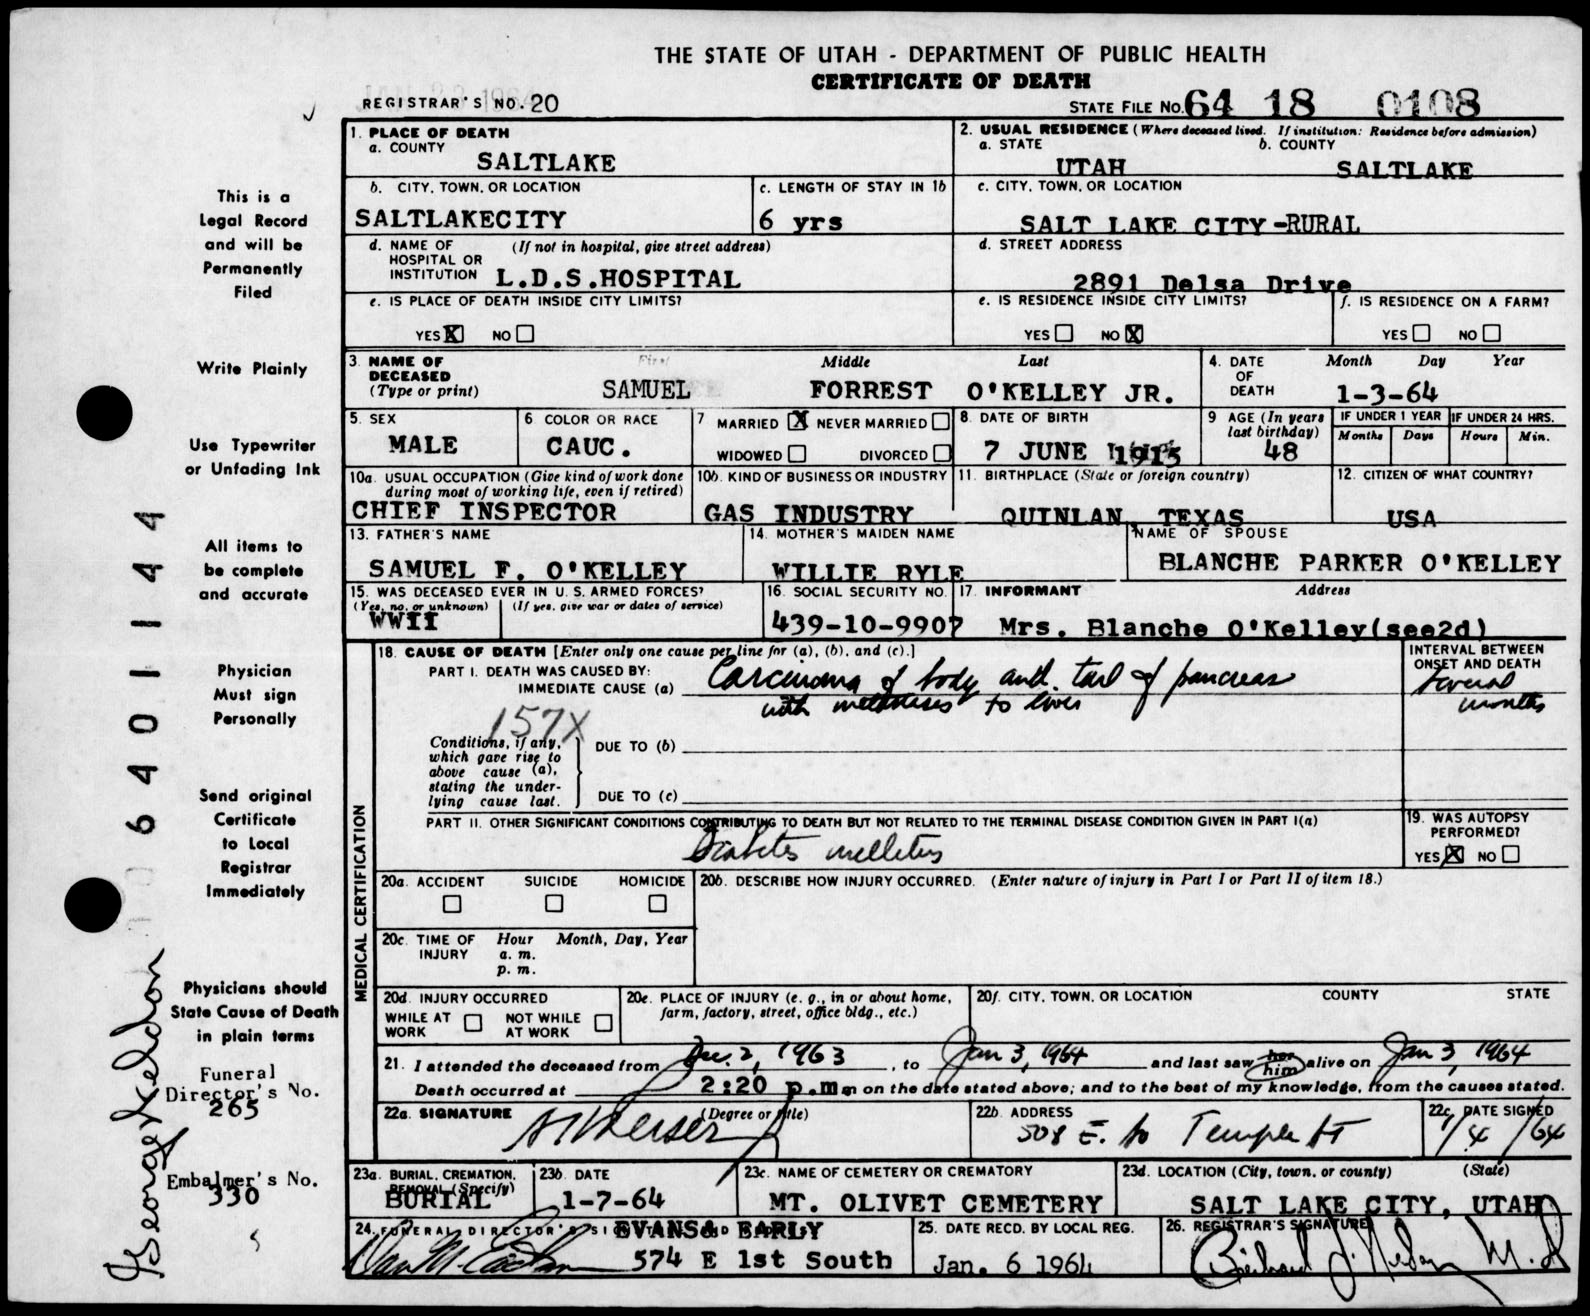 THE STATE OF UTAH - DEPARTMENT OF PUBLIC HEALTH
CERTIFICATE OF DEATH
REGISTRAR'S NO. 20
STATE FILE NO. 64 18 0108
1. PLACE OF DEATH
a. COUNTY
SALTLAKE
2. USUAL RESIDENCE (Where deceased lived. If institution: Residence before admission)
a. STATE b. COUNTY
UTAH SALTLAKE
b. CITY, TOWN, OR LOCATION
SALTLAKECITY
c. LENGTH OF STAY IN 1b
6 yrs
c. CITY, TOWN, OR LOCATION
SALT LAKE CITY-RURAL
d. NAME OF (If not in hospital, give street address)
HOSPITAL OR
INSTITUTION L.D.S.HOSPITAL
d. STREET ADDRESS
2891 Delsa Drive
e. IS PLACE OF DEATH INSIDE CITY LIMITS?
YES X NO
e. IS RESIDENCE INSIDE CITY LIMITS?
YES NO X
f. IS RESIDENCE ON A FARM?
YES NO
3. NAME OF First Middle Last
DECEASED
(Type or print) SAMUEL FORREST O'KELLEY JR.
4. DATE Month Day Year
OF
DEATH 1-3-64
5. SEX
MALE
6 COLOR OR RACE
CAUC.
7 MARRIED X NEVER MARRIED
WIDOWED DIVORCED
8 DATE OF BIRTH
7 JUNE 1915
9 AGE (In years
last birthday)
48
IF UNDER 1 YEAR IF UNDER 24 HRS.
Months Days Hours Min.
10a. USUAL OCCUPATION (Give kind of work done
during most of working life, even if retired)
CHIEF INSPECTOR
10b. KIND OF BUSINESS OR INDUSTRY
GAS INDUSTRY
11. BIRTHPLACE (State or foreign country)
QUINLAN, TEXAS
12. CITIZEN OF WHAT COUNTRY?
USA
13. FATHER'S NAME
SAMUEL F. O'KELLEY
14. MOTHER'S MAIDEN NAME
WILLIE RYLE
NAME OF SPOUSE
BLANCHE PARKER O'KELLEY
15. WAS DECEASED EVER IN U.S. ARMED FORCES?
(Yes, no, or unknown) (If yes, give war or dates of service)
WWII
16. SOCIAL SECURITY NO.
439-10-9907
17. INFORMANT Address
Mrs. Blanche O'Kelley(see2d)
MEDICAL CERTIFICATION
18. CAUSE OF DEATH [Enter only one cause per line for (a), (b), and (c).]
PART I. DEATH WAS CAUSED BY:
IMMEDIATE CAUSE (a) Carcinoma of body and tail of pancreas
with metastases to liver
INTERVAL BETWEEN
ONSET AND DEATH
several
months
157X
Conditions, if any,
which gave rise to
above cause (a),
stating the under-
lying cause last.
DUE TO (b)
DUE TO (c)
PART II. OTHER SIGNIFICANT CONDITIONS CONTRIBUTING TO DEATH BUT NOT RELATED TO THE TERMINAL DISEASE CONDITION GIVEN IN PART I(a)
Diabetes mellitus
19. WAS AUTOPSY
PERFORMED?
YES X NO
20a. ACCIDENT SUICIDE HOMICIDE
20b. DESCRIBE HOW INJURY OCCURRED. (Enter nature of injury in Part I or Part II of item 18.)
20c. TIME OF Hour Month, Day, Year
INJURY a. m.
p. m.
20d. INJURY OCCURRED
WHILE AT NOT WHILE
WORK AT WORK
20e. PLACE OF INJURY (e. g., in or about home,
farm, factory, street, office bldg., etc.)
20f. CITY, TOWN, OR LOCATION COUNTY STATE
21. I attended the deceased from Dec. 2, 1963, to Jan 3, 1964 and last saw her him alive on Jan 3, 1964
Death occurred at 2:20 p.m. m on the date stated above; and to the best of my knowledge, from the causes stated.
22a. SIGNATURE (Degree or title)
22b. ADDRESS
508 E. So Temple St
22c. DATE SIGNED
1/4/64
23a. BURIAL, CREMATION,
REMOVAL (Specify)
BURIAL
23b. DATE
1-7-64
23c. NAME OF CEMETERY OR CREMATORY
MT. OLIVET CEMETERY
23d. LOCATION (City, town, or county) (State)
SALT LAKE CITY, UTAH
24. FUNERAL DIRECTOR'S SIGNATURE AND ADDRESS
EVANS& EARLY
574 E 1st South
25. DATE RECD. BY LOCAL REG.
Jan. 6 1964
26. REGISTRAR'S SIGNATURE
M.D
This is a
Legal Record
and will be
Permanently
Filed
Write Plainly
Use Typewriter
or Unfading Ink
All items to
be complete
and accurate
Physician
Must sign
Personally
Send original
Certificate
to Local
Registrar
Immediately
Physicians should
State Cause of Death
in plain terms
Funeral
Director's No.
265
Embalmer's No.
330
6401144
George Keldon